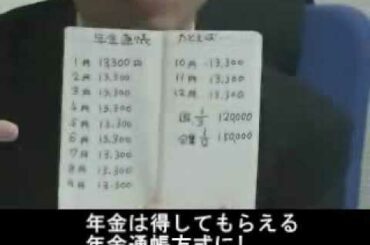 年金通帳
1月 13,300円
2月 13.300
3月 13.300
4月 13.300
5月 13.300
6月 13.300
7月 13.300
8月 13.300
9月 13.300
たとえば…
10月 13.300
11月 13.300
12月 13.300
国 1/3 120,000
企業 1/2 150,000
年金は得してもらえる
年金通帳方式にし